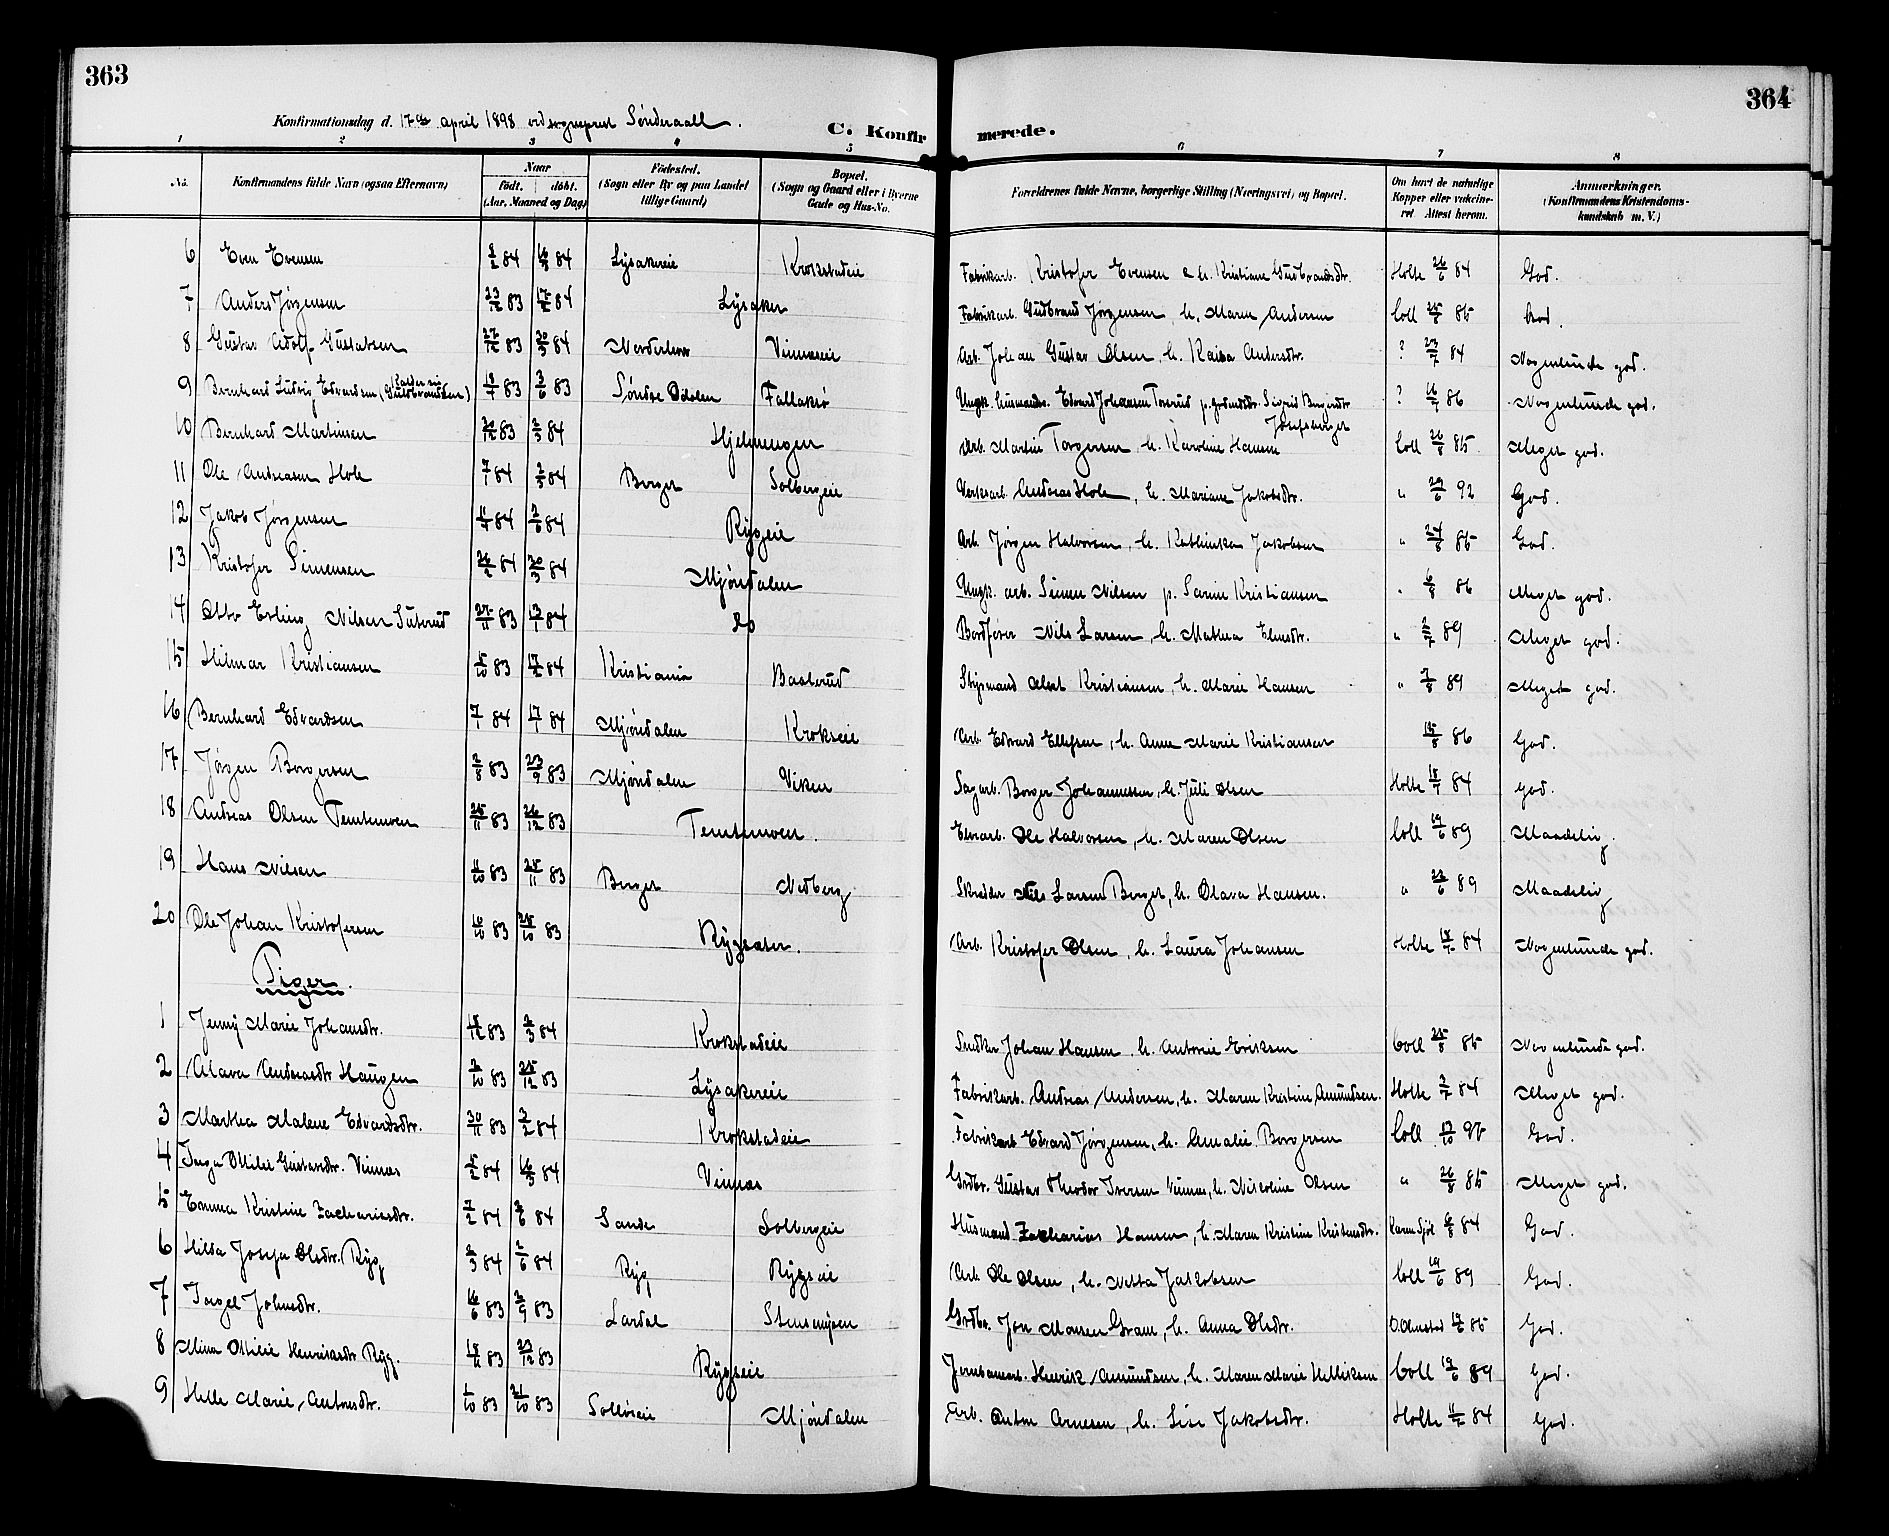 363
364
Konfirmationsdag d. 17de april 1898 ved sogneprest Sønderaall.
C. Konfirmerede.
1 2 3 4 5 6 7 8
No. Konfirmandens fulde Navn (ogsaa Efternavn) Naar født. døbt. (Aar, Maaned og Dag) Fødested. (Sogn eller By og paa Landet tillige Gaard) Bopæl. (Sogn og Gaard eller i Byerne Gade og Hus-No. Forældrenes fulde Navne, borgerlige Stilling (Næringsvei) og Bopæl. Om havt de naturlige Kopper eller vaccineret. Attest herom. Anmærkninger. (Konfirmandens Kristendomskundskab m. V.)
6 Even Evensen 84 84 Lysakereie Krokstadeie Fabrikarb. Kristofer Evensen & h. Kristiane Gudbrandsdr. Holte 26/6 84 God.
7 Anders Jørgensen 23/12 83 17/2 84 Lysaker Fabrikarb. Gudbrand Jørgensen, h. Maren Andersen Coll 25/8 85 God.
8 Gustav Adolf Gustavsen 27/12 83 84 Vinnæseie Arb. Johan Gustav Olsen, h. Kaisa Andersdtr. ? 23/7 84 Nogenlunde god.
9 Bernhard Ludvig Edvardsen (kalder sig Guldbrandsen) 83 3/6 83 Søndre Odalen Ungk. husmands. Edvard Johansen p. Sigrid ? 86 Nogenlunde god.
10 Bernhard Martinsen 83 2/3 84 Hjelmengen Arb. Martin Torgersen, h. Karoline Hansen Coll 26/8 85 Meget god.
11 Ole Andreasen Hole 84 84 Berger Solbergeie Verksarb. Andreas Hole, h. Mariane Jakobsdtr. " 29/6 92 God.
12 Jakob Jørgensen 84 2/6 84 Rygeie Arb. Jørgen Halvorsen, h. Kathinka Jakobsen " 24/8 85 God.
13 Kristofer Simensen 26/2 84 20/3 84 Mjøndalen Ungk. arb. Simen Nilsen p. Sarine Kristiansen " 86 Meget god.
14 Otto Erling Nilsen 83 13/1 84 do Nils Larsen, h. Mathea " 89 Meget god.
15 Hilmar Kristiansen 5/10 83 17/2 84 Kristiania Baaserud Styrmand Kristiansen, h. Marie Hansen " 7/8 89 Meget god.
16 Bernhard Edvardsen 84 84 Mjøndalen Krokseie Arb. Edvard Ellefsen, h. Anne Marie Kristiansen 86 God.
17 Jørgen Borgersen 2/8 83 23/9 83 Mjøndalen Viken Sagarb. Borger Johannessen, h. Juli Olsen Holte 84 God.
18 Andreas Olsen Temtemoen 25/11 83 26/12 83 Temtemoen. Ole Halvorsen, h. Maren Olsen Coll 19/6 89 Maadelig
19 Hans Nilsen 11/10 83 25/11 83 Berger Nedberg Skredder Nils Larsen Berger, h. Olava Hansen. " 89 Maadelig
20 Ole Johan Kristofersen 83 83 Arb. Kristofer Olsen, h. Laura Johansen Holte 84 Nogenlunde god.
Piger.
1 Jenny Marie Johansdtr. 83 2/3 84 Krokstadeie Snedker Johan Hansen h. Antonie Eriksen Coll 25/8 85 Nogenlunde god.
2 Olava Andreasdtr Haugen 2/10 83 25/12 83 Lysakereie Fabrikarb. Andreas Andersen, h. Maren Kristine Amundsen. Holte 84 Meget god.
3 Marthea Malene Edvardsdtr. 30/11 83 2/2 84 Krokstadeie Fabrikarb Edvard Jørgensen, h. Amalie Borgersen Coll 17/10 God.
4 Inga Otilie Gustavsdtr. Vinnæs 5/2 84 16/3 84 Vinnæs Grdbr. Gustav Theodor Iversen Vinnæs, h. Nikoline Olsen " 26/8 85 Meget god.
5 Emma Kristine Zachariasdtr. 7/2 84 84 Sande Solbergeie Husmand Zacharias Hansen, h. Maren Kristine Kristensdtr. 84 God.
6 Hilda Josefa Olsdtr. Ryg 3/3 84 2/6 84 Ryg Rygseie Arb. Ole Olsen, h. Netta Jakobsen Coll 19/6 89 God.
7 Ingel Johnsdtr. 16/6 83 2/9 83 Lardal Stensmyren Grdbr. Jon Monsen Gram, h. Anna Olsdtr. O. Olmstad 85 God.
8 Mina Otilie Henriksdtr Ryg. 83 23/12 83 Rygseie Jernbanearb. Henrik Amundsen, h. Maren Marie Helliksen Coll 19/6 89 God.
9 Helle Marie Antonsdtr. 1/10 83 21/10 83 Mjøndalen Arb. Anton Arnesen, h. Lise Jakobsdtr. Holte 84 God.